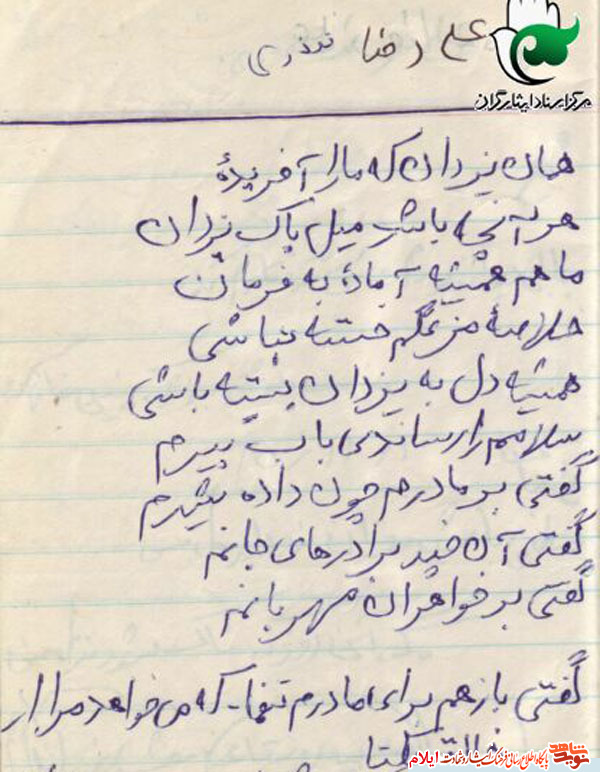 علی رضا نذری
مرکز اسناد ایثارگران
همان یزدان که ما را آفریده
هر آنچه باشد میل پاک یزدان
ما هم همیشه آماده به فرمان
خلاصه من نگم خسته نباشی
همیشه دل به یزدان بسته باشی
سلامم را رساندی باب پیرم
گفتی بر مادرم چون داده شیرم
گفتی آن چند برادرهای جانم
گفتی بر خواهران مهربانم
گفتی بازهم برای مادرم تنها که می‌خواهد مرا از
یکتا
نوید شاهد پایگاه اطلاع رسانی فرهنگ ایثار و شهادت ایلام